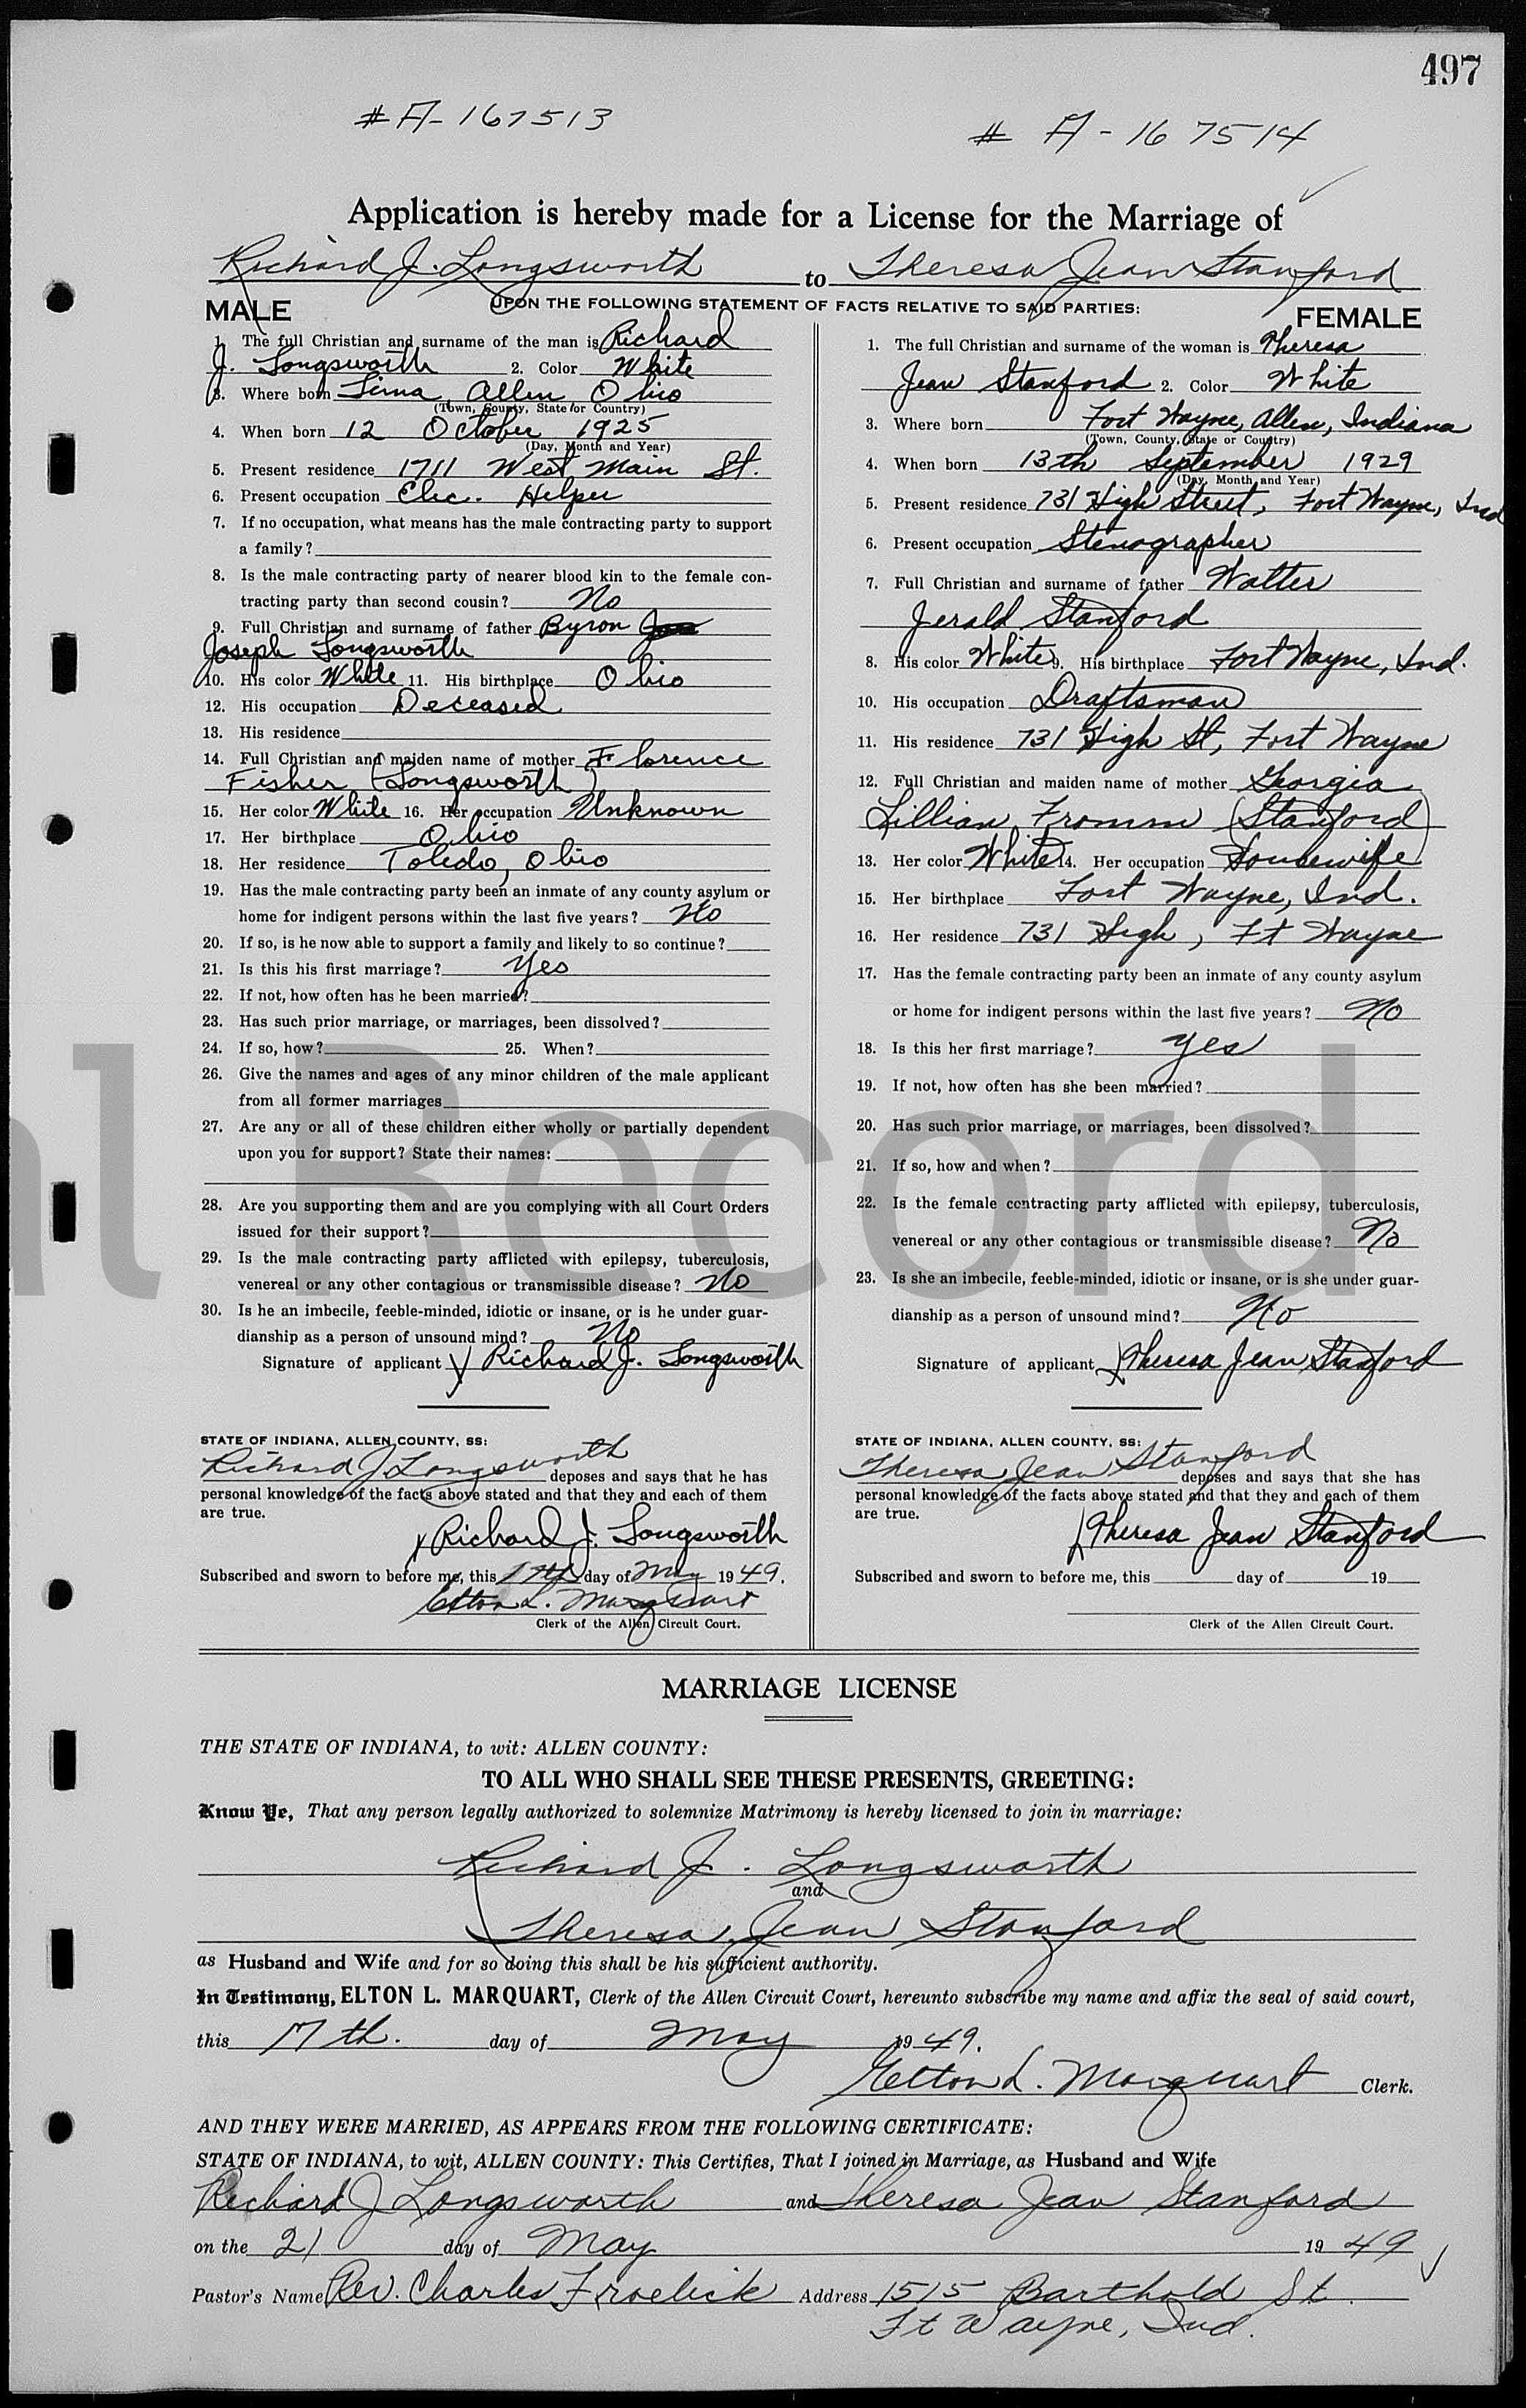 497
# A- 167513
# A - 16 75 14
Application is hereby made for a License for the Marriage of
Richard J. Longsworth to Theresa Jean Stanford
UPON THE FOLLOWING STATEMENT OF FACTS RELATIVE TO SAID PARTIES:
MALE
1. The full Christian and surname of the man is Richard
J. Longsworth 2. Color White
3. Where born Lima, Allen, Ohio
(Town, County, State or Country)
4. When born 12 October 1925
(Day, Month and Year)
5. Present residence 1711 West Main St.
6. Present occupation Elec. Helper
7. If no occupation, what means has the male contracting party to support
a family?
8. Is the male contracting party of nearer blood kin to the female con-
tracting party than second cousin? No
9. Full Christian and surname of father Byron
Joseph Longsworth
10. His color White 11. His birthplace Ohio
12. His occupation Deceased
13. His residence
14. Full Christian and maiden name of mother Florence
Fisher (Longsworth)
15. Her color White 16. Her occupation Unknown
17. Her birthplace Ohio
18. Her residence Toledo, Ohio
19. Has the male contracting party been an inmate of any county asylum or
home for indigent persons within the last five years? No
20. If so, is he now able to support a family and likely to so continue?
21. Is this his first marriage? Yes
22. If not, how often has he been married?
23. Has such prior marriage, or marriages, been dissolved?
24. If so, how? 25. When?
26. Give the names and ages of any minor children of the male applicant
from all former marriages
27. Are any or all of these children either wholly or partially dependent
upon you for support? State their names:
28. Are you supporting them and are you complying with all Court Orders
issued for their support?
29. Is the male contracting party afflicted with epilepsy, tuberculosis,
venereal or any other contagious or transmissible disease? No
30. Is he an imbecile, feeble-minded, idiotic or insane, or is he under guar-
dianship as a person of unsound mind? No
Signature of applicant Richard J. Longsworth
STATE OF INDIANA, ALLEN COUNTY, SS:
Richard J Longsworth deposes and says that he has
personal knowledge of the facts above stated and that they and each of them
are true.
Richard J. Longsworth
Subscribed and sworn to before me, this 17th day of May 1949.
Elton L. Marquart
Clerk of the Allen Circuit Court.
FEMALE
1. The full Christian and surname of the woman is Theresa
Jean Stanford 2. Color White
3. Where born Fort Wayne, Allen, Indiana
(Town, County, State or Country)
4. When born 13th September 1929
(Day, Month and Year)
5. Present residence 731 High Street, Fort Wayne, Ind
6. Present occupation Stenographer
7. Full Christian and surname of father Walter
Jerald Stanford
8. His color White 9. His birthplace Fort Wayne, Ind.
10. His occupation Draftsman
11. His residence 731 High St, Fort Wayne
12. Full Christian and maiden name of mother Georgia
Lillian Fromm (Stanford)
13. Her color White 14. Her occupation Housewife
15. Her birthplace Fort Wayne, Ind.
16. Her residence 731 High, Ft Wayne
17. Has the female contracting party been an inmate of any county asylum
or home for indigent persons within the last five years? No
18. Is this her first marriage? Yes
19. If not, how often has she been married?
20. Has such prior marriage, or marriages, been dissolved?
21. If so, how and when?
22. Is the female contracting party afflicted with epilepsy, tuberculosis,
venereal or any other contagious or transmissible disease? No
23. Is she an imbecile, feeble-minded, idiotic or insane, or is she under guar-
dianship as a person of unsound mind? No
Signature of applicant Theresa Jean Stanford
STATE OF INDIANA, ALLEN COUNTY, SS:
Theresa Jean Stanford deposes and says that she has
personal knowledge of the facts above stated and that they and each of them
are true.
Theresa Jean Stanford
Subscribed and sworn to before me, this day of 19
Clerk of the Allen Circuit Court.
l Record
MARRIAGE LICENSE
THE STATE OF INDIANA, to wit: ALLEN COUNTY:
TO ALL WHO SHALL SEE THESE PRESENTS, GREETING:
Know Ye, That any person legally authorized to solemnize Matrimony is hereby licensed to join in marriage:
Richard J. Longsworth
and
Theresa Jean Stanford
as Husband and Wife and for so doing this shall be his sufficient authority.
In Testimony, ELTON L. MARQUART, Clerk of the Allen Circuit Court, hereunto subscribe my name and affix the seal of said court,
this 17th. day of May 1949.
Elton L. Marquart Clerk.
AND THEY WERE MARRIED, AS APPEARS FROM THE FOLLOWING CERTIFICATE:
STATE OF INDIANA, to wit, ALLEN COUNTY: This Certifies, That I joined in Marriage, as Husband and Wife
Richard J Longsworth and Theresa Jean Stanford
on the 21 day of May 19 49
Pastor's Name Rev. Charles Froelick Address 1515 Barthold St.
Ft Wayne, Ind.